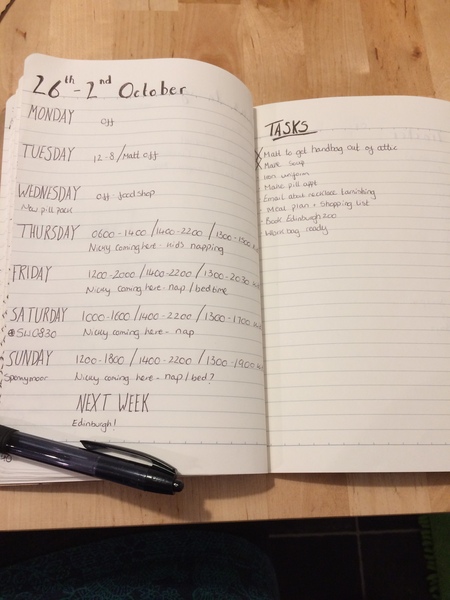 26th - 2nd October
MONDAY off
TUESDAY 12-8/Matt off
WEDNESDAY off food shop
New pill pack
THURSDAY 0600-1400/1400-2200/1300-
Nicky coming here - kids napping
FRIDAY 1200-2000/1400-2200/1300-2030
Nicky coming here - nap/bedtime
SATURDAY 1000-1600/1400-2200/1300-1700
0830 Nicky coming here - nap
SUNDAY 1200-1800/1400-2200/1300-1900
Spennymoor Nicky coming here - nap/bed?
NEXT WEEK
Edinburgh!
TASKS
Matt to get handbag out of attic
Make soup
Iron uniform
Make pill appt
Email about necklace tarnishing
Meal plan + Shopping list
Book Edinburgh zoo
Work bag ready